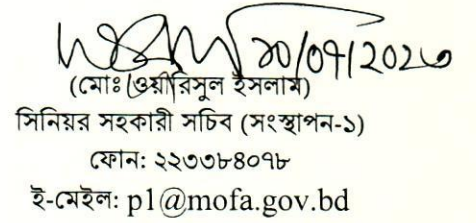 ১০/০৭/২০২৩
(মোঃ ওয়ারিসুল ইসলাম)
সিনিয়র সহকারী সচিব (সংস্থাপন-১)
ফোন: ২২৩৩৮৪০৭৮
ই-মেইল: p1@mofa.gov.bd